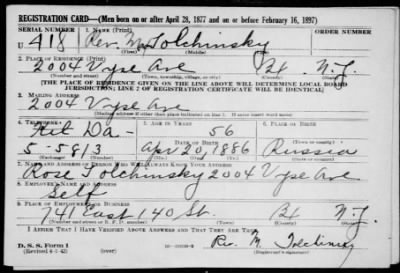 REGISTRATION CARD—(Men born on or after April 28, 1877 and on or before February 16, 1897)
SERIAL NUMBER 1. NAME (Print) ORDER NUMBER
U 418 Rev. M. Tolchinsky
2. PLACE OF RESIDENCE (Print)
2004 Vyse Ave Bx. N.Y.
(Number and street) (Town, township, village, or city) (County) (State)
[THE PLACE OF RESIDENCE GIVEN ON THE LINE ABOVE WILL DETERMINE LOCAL BOARD
JURISDICTION; LINE 2 OF REGISTRATION CERTIFICATE WILL BE IDENTICAL]
3. MAILING ADDRESS
2004 Vyse Ave
[Mailing address if other than place indicated on line 2. If same insert word same]
4. TELEPHONE 5. AGE IN YEARS 6. PLACE OF BIRTH
56
DATE OF BIRTH
5-5813 Apr. 20, 1886 Russia
(Exchange) (Number) (Mo.) (Day) (Yr.) (State or country)
7. NAME AND ADDRESS OF PERSON WHO WILL ALWAYS KNOW YOUR ADDRESS
Rose Tolchinsky 2004 Vyse Ave
8. EMPLOYER'S NAME AND ADDRESS
Self
9. PLACE OF EMPLOYMENT OR BUSINESS
741 East 140 St. Bx N.Y.
(Number and street or R. F. D. number) (Town) (County) (State)
I AFFIRM THAT I HAVE VERIFIED ABOVE ANSWERS AND THAT THEY ARE TRUE.
D. S. S. Form 1
(Revised 4-1-42) Rev. M. Tolchinsky